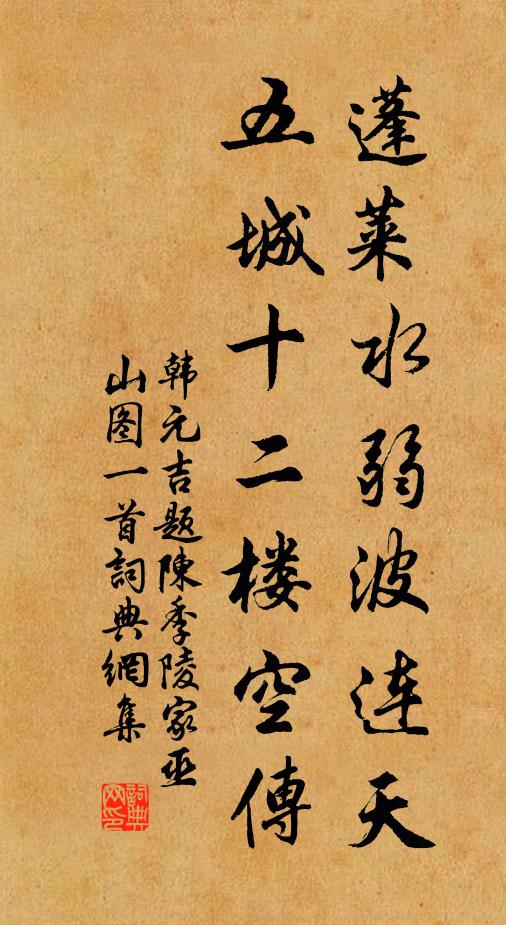 蓬莱水弱波连天
五城十二楼空傳
韩元吉题陳季陵家巫
山图一首詞典網集
詞典網印